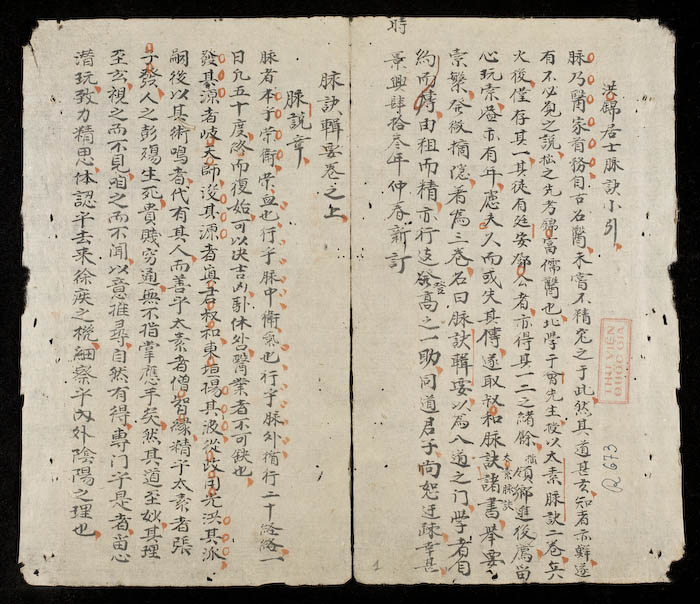 洪錦居士脉訣小引
脉乃醫家首務自古名醫未嘗不精究之于此然其道甚玄知者亦鮮遂
有不必究之說拙之先考錦窩儒醫也北學于曾先生授以太素脉訣二卷兵
火後僅存其一其徒有延安鄧公者亦得其一二之緒餘 傾鄉進後屬留
太素脉訣
心玩索蓋亦有年慮夫久而或失其傳遂取叔和脉訣諸書舉要
索繁發微摘隱著為三卷名曰脉訣輯要以為入道之门學者自
約而博由粗而精亦行遠登高之一助同道君子尚恕迂疎幸甚
時
景興肆拾叁年仲春新訂
脉訣輯要卷之上
脉說章
脉者本乎營衛榮血也行乎脉中衛氣也行乎脉外偕行二十絡絡一
日凡五十度終而復始可以决吉凶卧休咎醫業者不可缺也
發其源者岐天師浚其源者眞君叔和東垣揚其波從政用光洪其派
嗣後以其術鳴者代有其人而善乎太素者僧智緣精乎太素者張
子發人之彭殤生死貴賤穷通無不指掌應乎矣然其道至妙其理
至玄視之而不見聽之而不聞以意推尋自然有得專门乎是者留心
潛玩致力精思体認乎去來徐疾之機細察乎內外陰陽之理也
THƯ VIỆN
QUỐC GIA
R 673
1